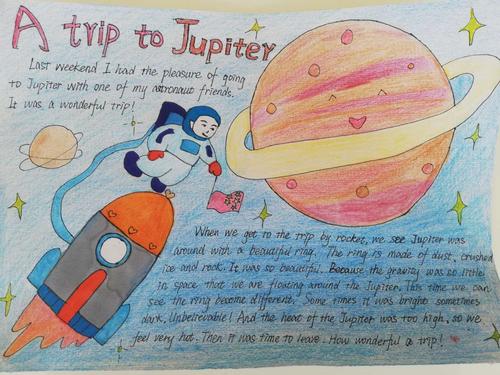 A trip to Jupiter
Last weekend I had the pleasure of going
to Jupiter with one of my astronaut friends.
It was a wonderful trip!
When we get to the trip by rocket, we see Jupiter was
around with a beautiful ring. The ring is made of dust, crushed
ice and rock. It was so beautiful. Because the gravity was so little
in space that we are floating around the Jupiter. This time we can
see the ring become different. Some times it was bright sometimes
dark. Unbelievable! And the heat of the Jupiter was too high, so we
feel very hot. Then it was time to leave. How wonderful a trip!